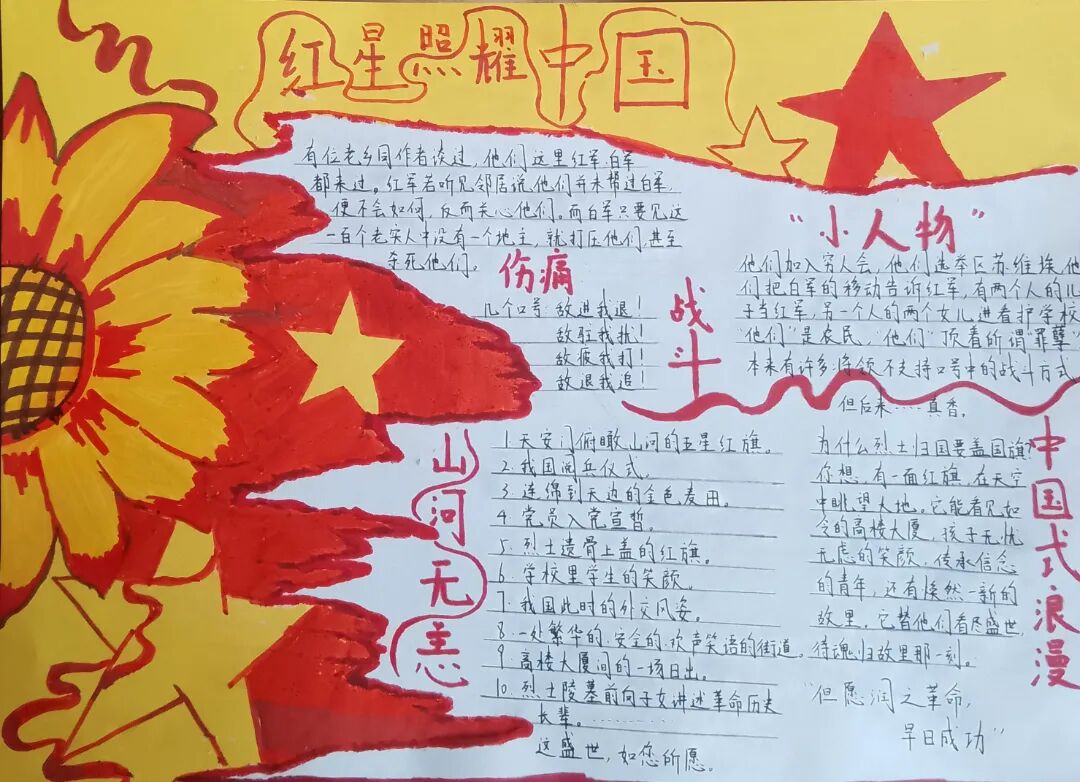 红星照耀中国
有位老乡同作者谈过，他们这里红军、白军
都来过。红军若听见邻居说他们并未帮过白军
便不会如何，反而关心他们。而白军只要见这
一百个老实人中没有一个地主，就打压他们，甚至
杀死他们。
伤痛
几个口号：敌进我退！
敌驻我扰！
敌疲我打！
敌退我追！
战斗
“小人物”
他们加入穷人会，他们选举区苏维埃，他
们把白军的移动告诉红军，有两个人的儿
子当红军，另一个人的两个女儿进看护学校
“他们”是农民，“他们”顶着所谓罪孽“
本来有许多将领不支持口号中的战斗方式，
但后来……真香。
山河无恙
1. 天安门俯瞰山河的五星红旗。
2. 我国阅兵仪式。
3. 连绵到天边的金色麦田。
4. 党员入党宣誓。
5. 烈士遗骨上盖的红旗。
6. 学校里学生的笑颜。
7. 我国此时的外交风姿。
8. 一处繁华的、安全的、欢声笑语的街道。
9. 高楼大厦间的一场日出。
10. 烈士陵墓前向子女讲述革命历史
长辈。…………
这盛世，如您所愿。
中国式浪漫
为什么烈士归国要盖国旗？
你想，有一面红旗，在天空
中眺望大地。它能看见如
今的高楼大厦，孩子无忧
无虑的笑颜，传承信念
的青年，还有焕然一新的
故里。它替他们看尽盛世，
待魂归故里那一刻。
“但愿润之革命，
早日成功”